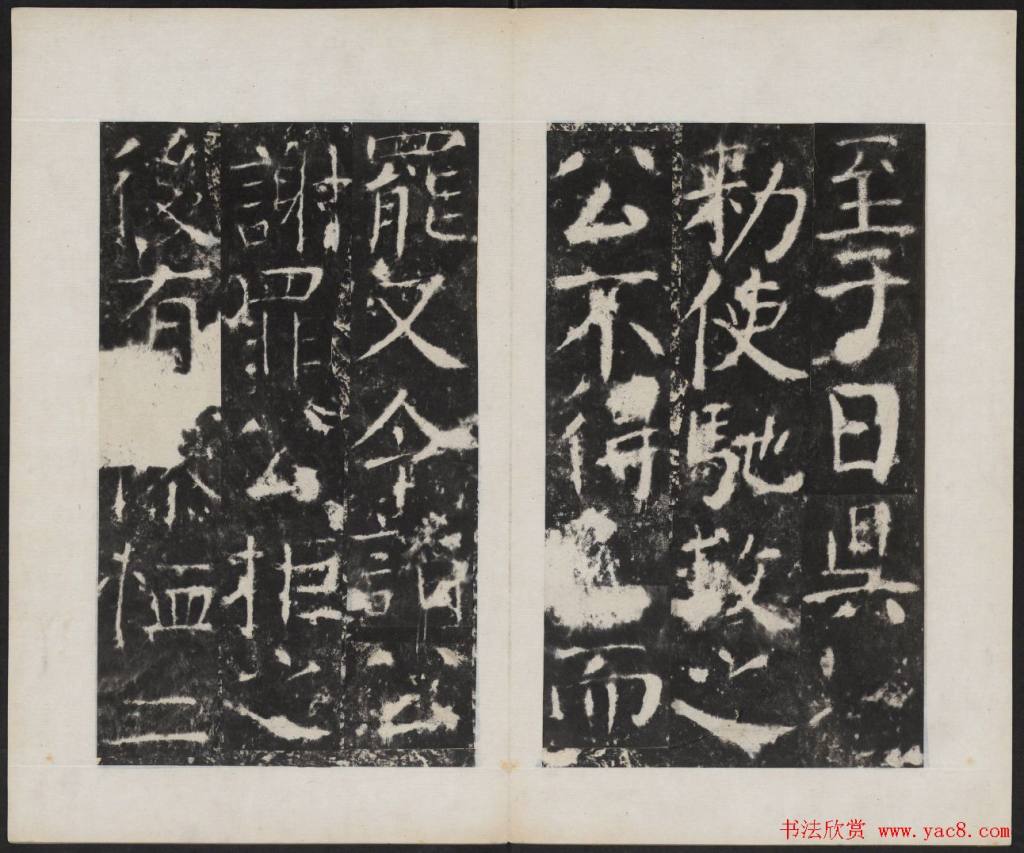 至于日昃
勑使馳救之
公不得而
罷又令公
謝罪公拒之
後有二
书法欣赏 www.yac8.com